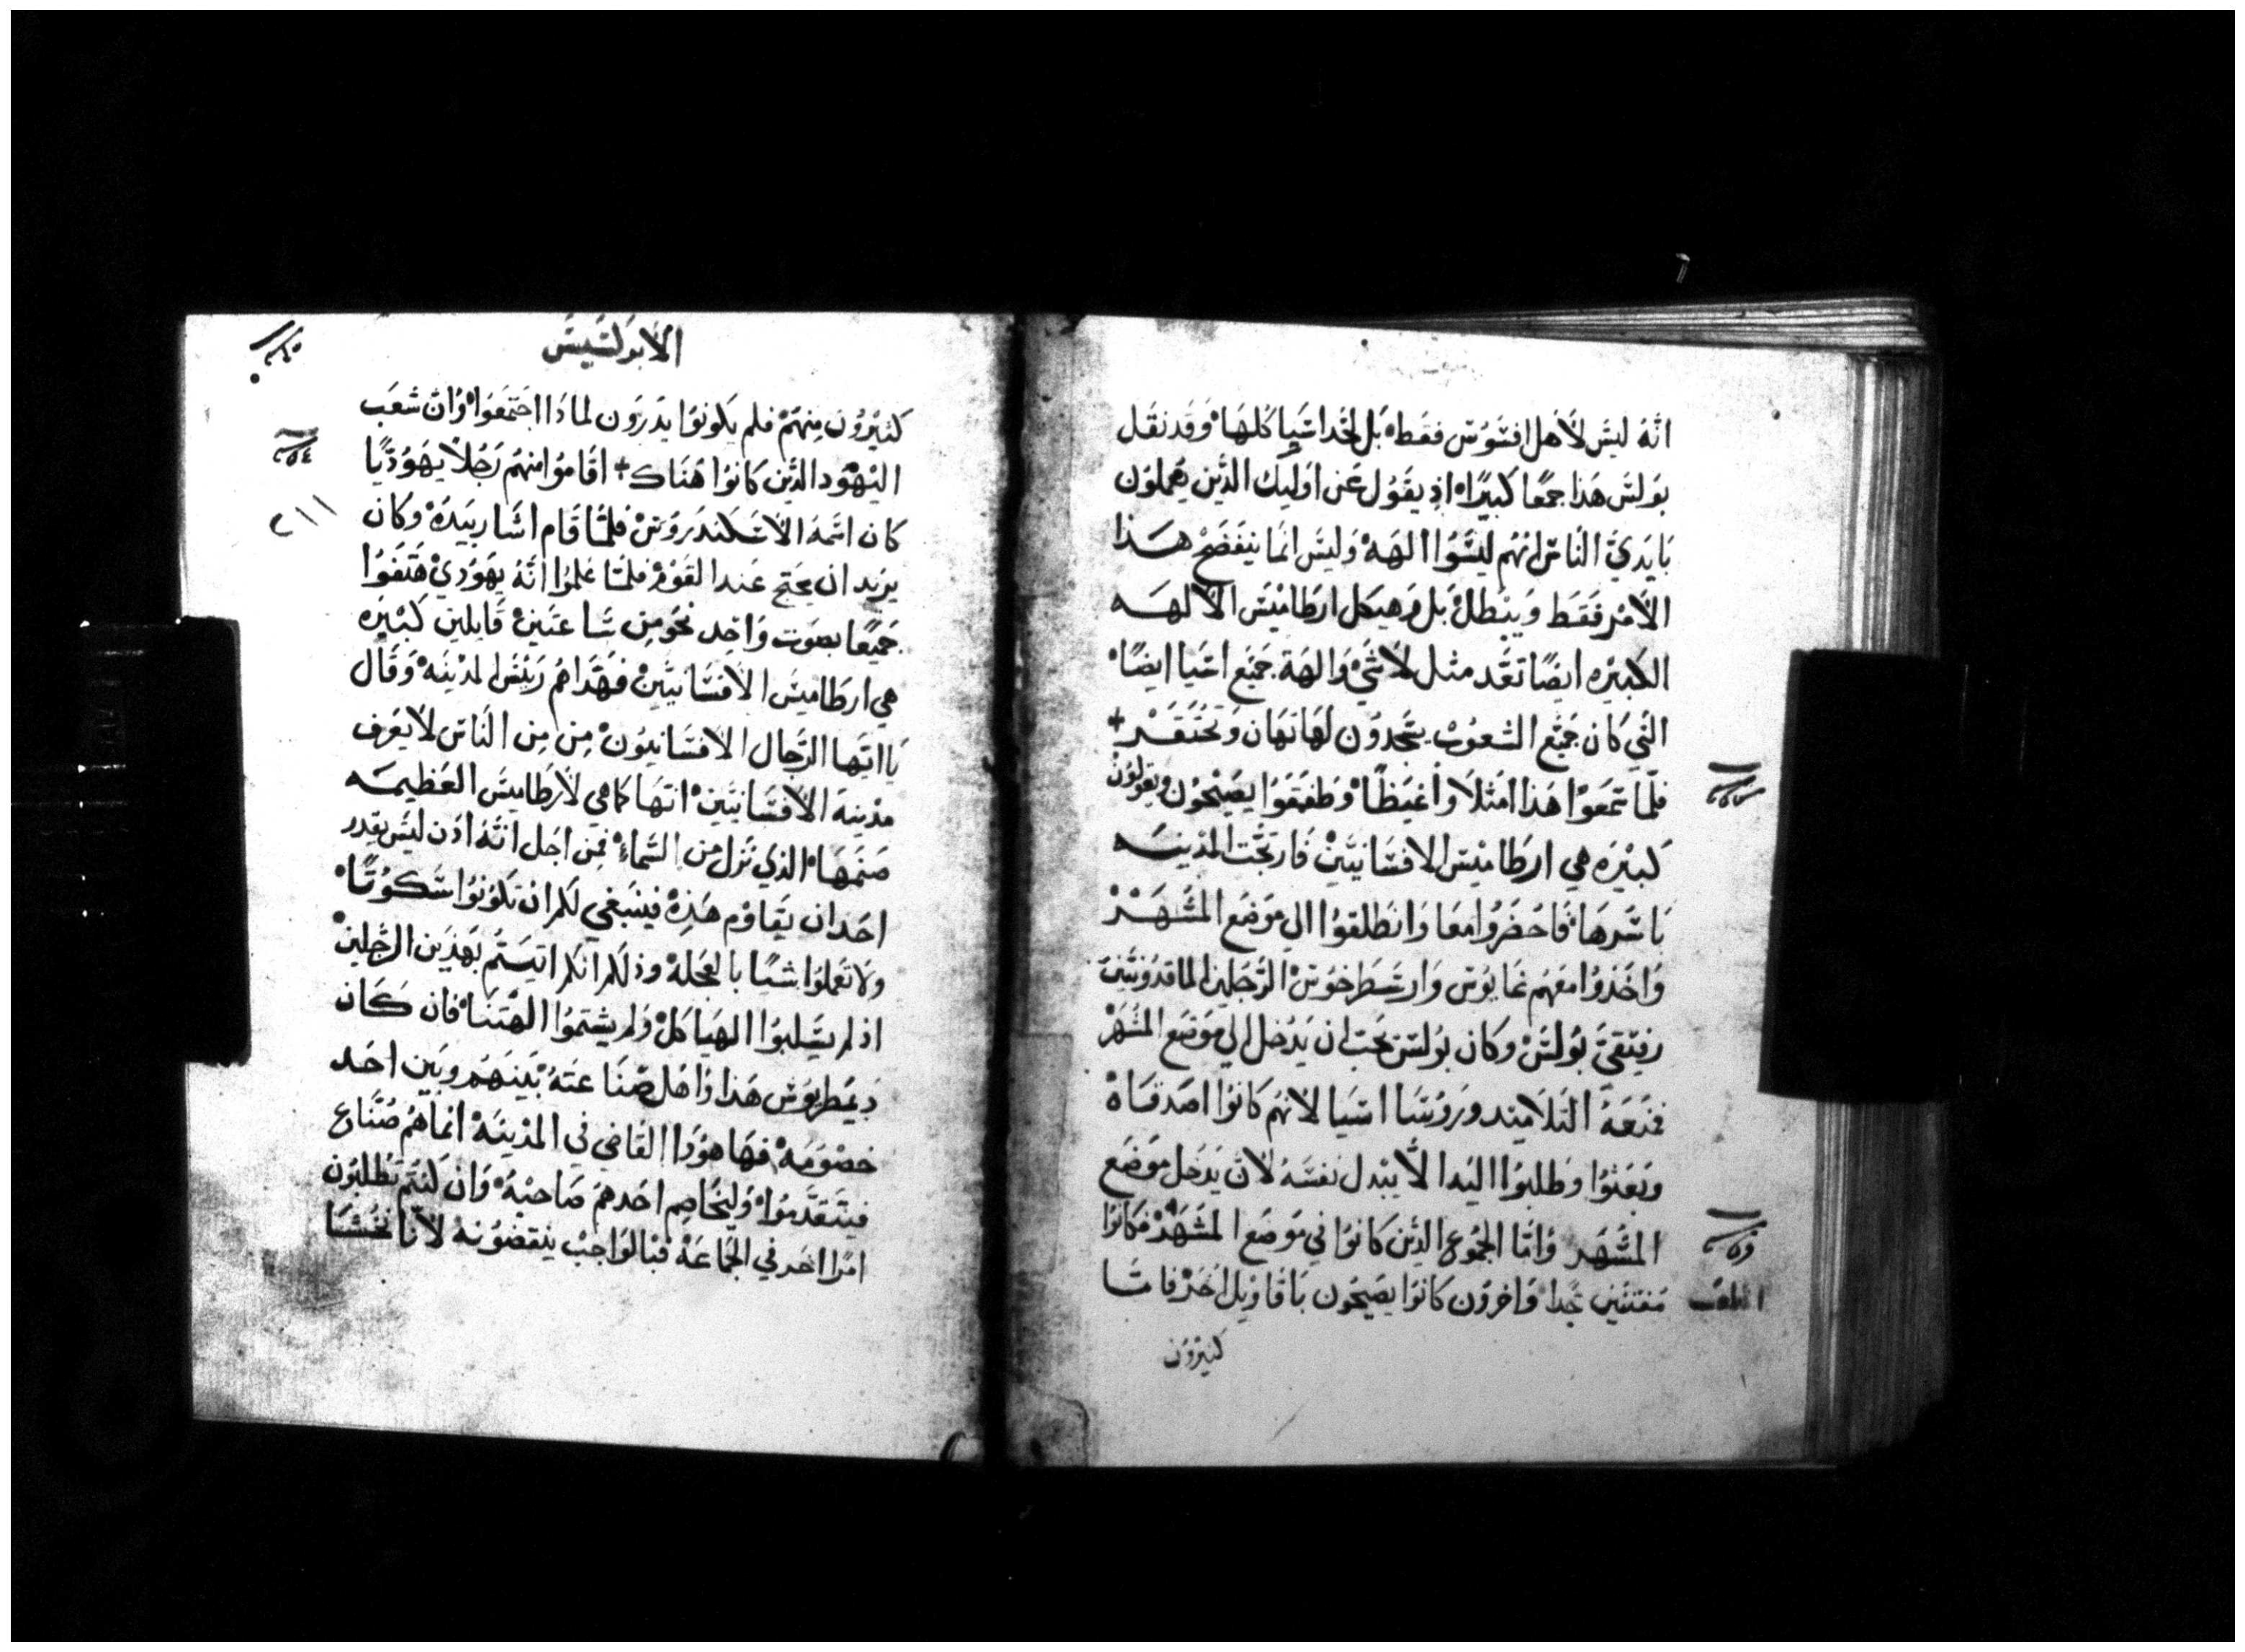 انه ليس لاهل افسوس فقط بل لحد اسيا كلها وقد نقل
بولس هذا جمعا كبيرا اذ يقول عن اوليك الذين يعملون
بايدي الناس انهم ليسوا الهه وليس انما ينفضح هذا
الامر فقط ويبطل بل وهيكل ارطاميس الالهه
الكبيره ايضا تعد مثل لا شي والهة جميع اسيا ايضا
التي كان جميع الشعوب يسجدون لها تهان وتحتقر +
فلما سمعوا هذا امتلاوا غيظا وطفقوا يصيحون ويقولون
كبيره هي ارطاميس الافسانيين فارتجت المدينه
باسرها فاحضروا معا وانطلقوا الي موضع المشهد
واخذوا معهم غايوس وارسطرخوس الرجلين الماقدونيين
رفيقي بولس وكان بولس يحب ان يدخل الي موضع المشهد
فمنعه التلاميذ وروسا اسيا لانهم كانوا اصدقاه
وبعثوا وطلبوا اليه الا يبدل نفسه لان يدخل موضع
المشهد واما الجموع الذين كانوا في موضع المشهد فكانوا
مفتنين جدا واخرون كانوا يصيحون باقاويل اخر فاما
كثيرون
الابركسيس
كثيرون منهم فلم يكونوا يدرون لماذا اجتمعوا وان شعب
اليهود الذين كانوا هناك + اقاموا منهم رجلا يهوديا
٢١١
كان اسمه الاسكندروس فلما قام اشار بيده وكان
يريد ان يحتج عند القوم فلما علموا انه يهودي هتفوا
جميعا بصوت واحد نحو من ساعتين قايلين كبيره
هي ارطاميس الافسانيين فهداهم رييس المدينه وقال
يا ايها الرجال الافسانيون من من الناس لا يعرف
مدينة الافسانيين انها كما هي لارطاميس العظيمه
صنمها الذي نزل من السماء فمن اجل انه اذن ليس يقدر
احد ان يقاوم هذه فينبغي لكم ان تكونوا سكوتا
ولا تعملوا شيا بالعجله وذلكم انكم اتيتم بهذين الرجلين
اذ لم يسلبوا الهياكل ولم يشتموا الهتنا فان كان
ديمطريوس هذا واهل صناعته بينهم وبين احد
خصومه فها هوذا القاضي في المدينه انما هم صناع
فيتقدموا وليخاصم احدهم صاحبه وان كنتم تطلبون
امرا اخر في الجماعه فبالواجب ينقضونه لانا نخشا